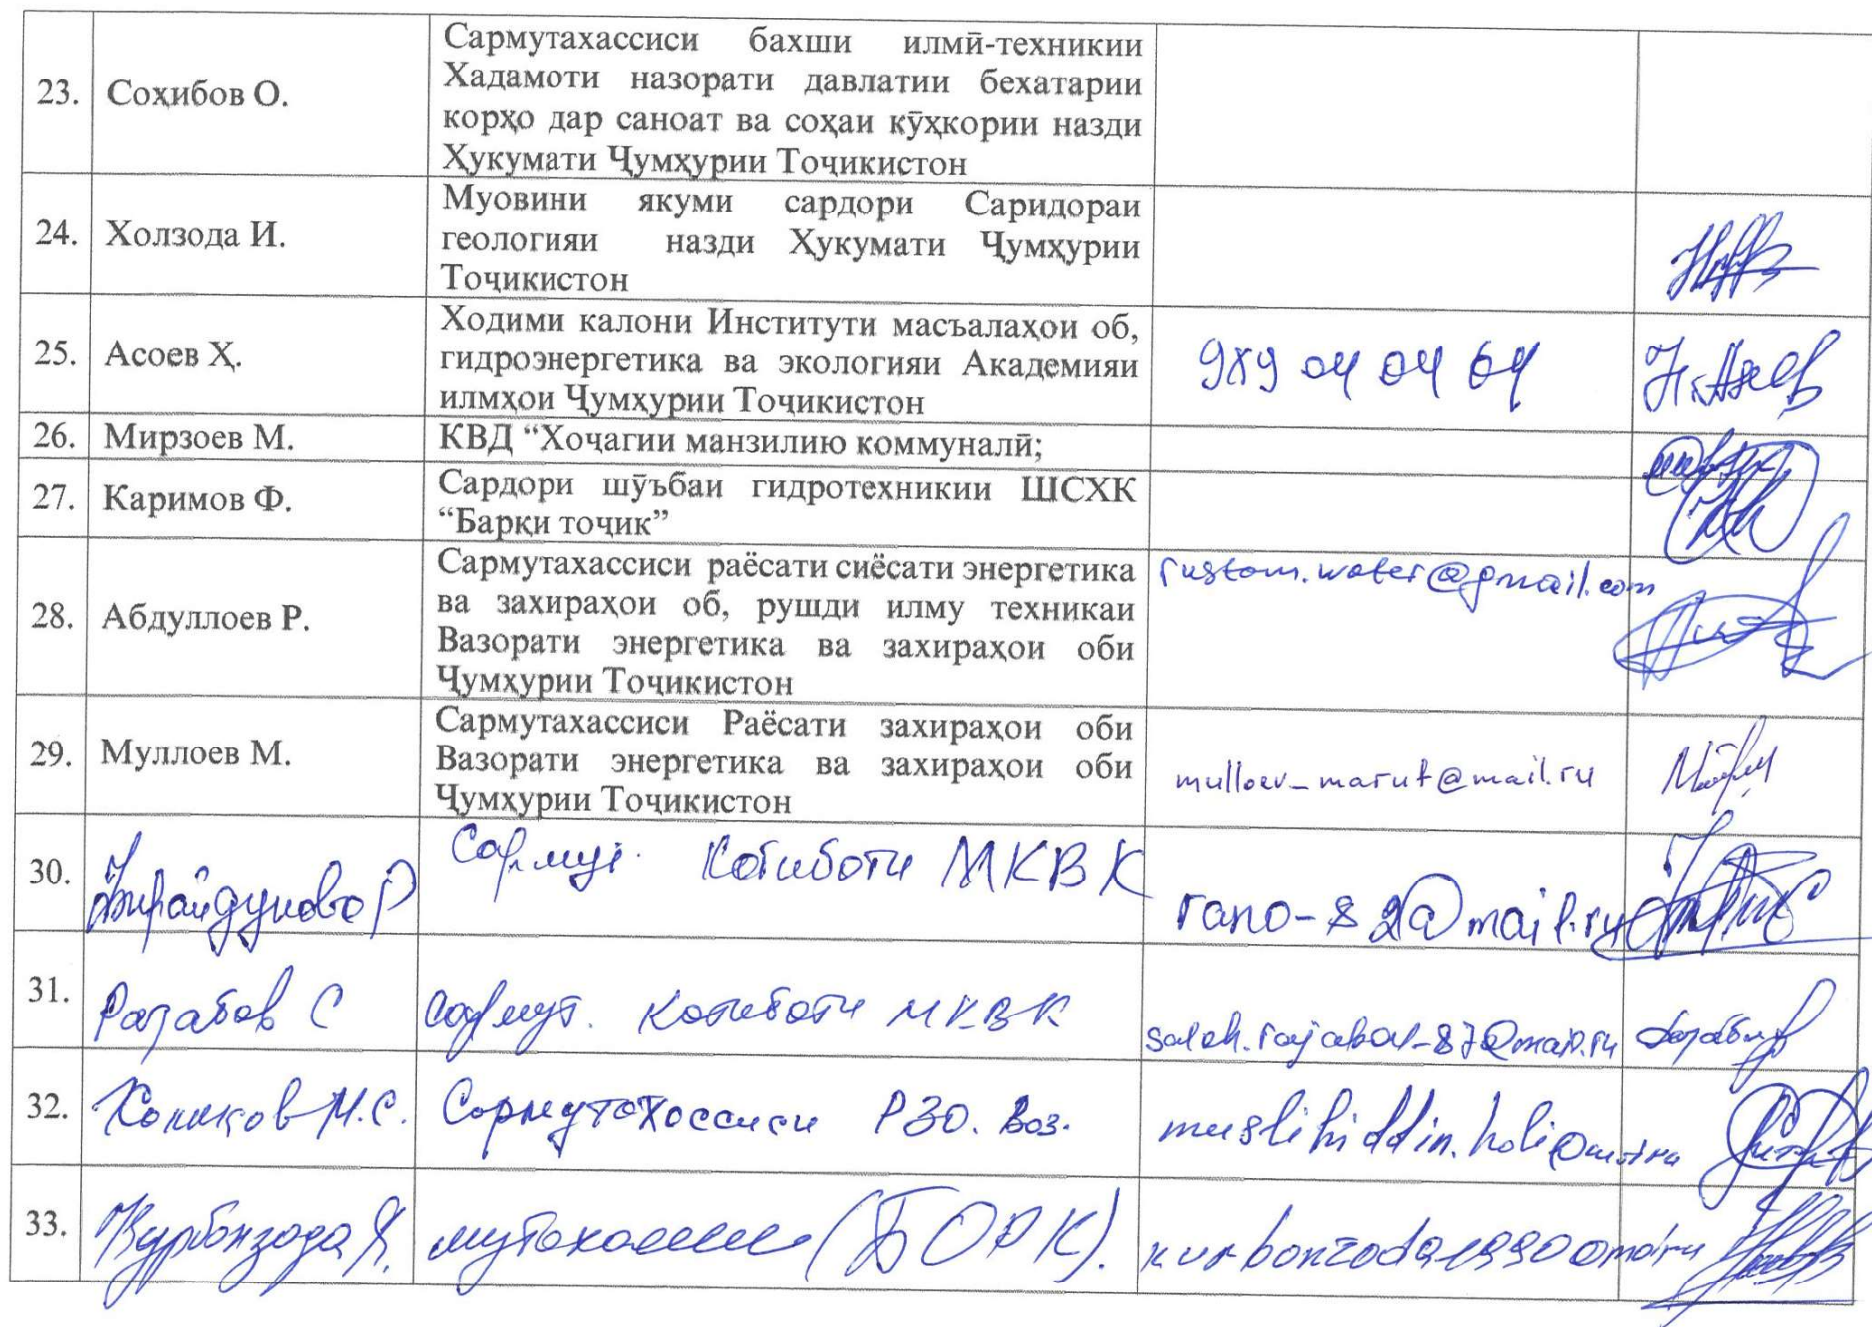 23. Соҳибов О.
Сармутахассиси бахши илмӣ-техникии
Хадамоти назорати давлатии бехатарии
корҳо дар саноат ва соҳаи кӯҳкории назди
Ҳукумати Ҷумҳурии Тоҷикистон
24. Холзода И.
Муовини якуми сардори Саридораи
геологияи назди Ҳукумати Ҷумҳурии
Тоҷикистон
25. Асоев Ҳ.
Ходими калони Институти масъалаҳои об,
гидроэнергетика ва экологияи Академияи
илмҳои Ҷумҳурии Тоҷикистон
989 04 04 64
Н. Асоев
26. Мирзоев М. КВД “Хоҷагии манзилию коммуналӣ;
27. Каримов Ф.
Сардори шӯъбаи гидротехникии ШСХК
“Барқи тоҷик”
28. Абдуллоев Р.
Сармутахассиси раёсати сиёсати энергетика
ва захираҳои об, рушди илму техникаи
Вазорати энергетика ва захираҳои оби
Ҷумҳурии Тоҷикистон
rustam.water@gmail.com
29. Муллоев М.
Сармутахассиси Раёсати захираҳои оби
Вазорати энергетика ва захираҳои оби
Ҷумҳурии Тоҷикистон
mulloev_maruf@mail.ru
30. Р Сармут. Котиботи МКВК rano-82@mail.ru
31. Раҷабов С Сармут. Котиботи МКВК saleh.rajabov-87@mail.ru
32. Холиков М.С. Сармутахассиси РЗО. Воз. muslihiddin.holi@mail.ru
33. Курбонзода мутахассиси (БОРК). kurbonzoda1990@mail.ru